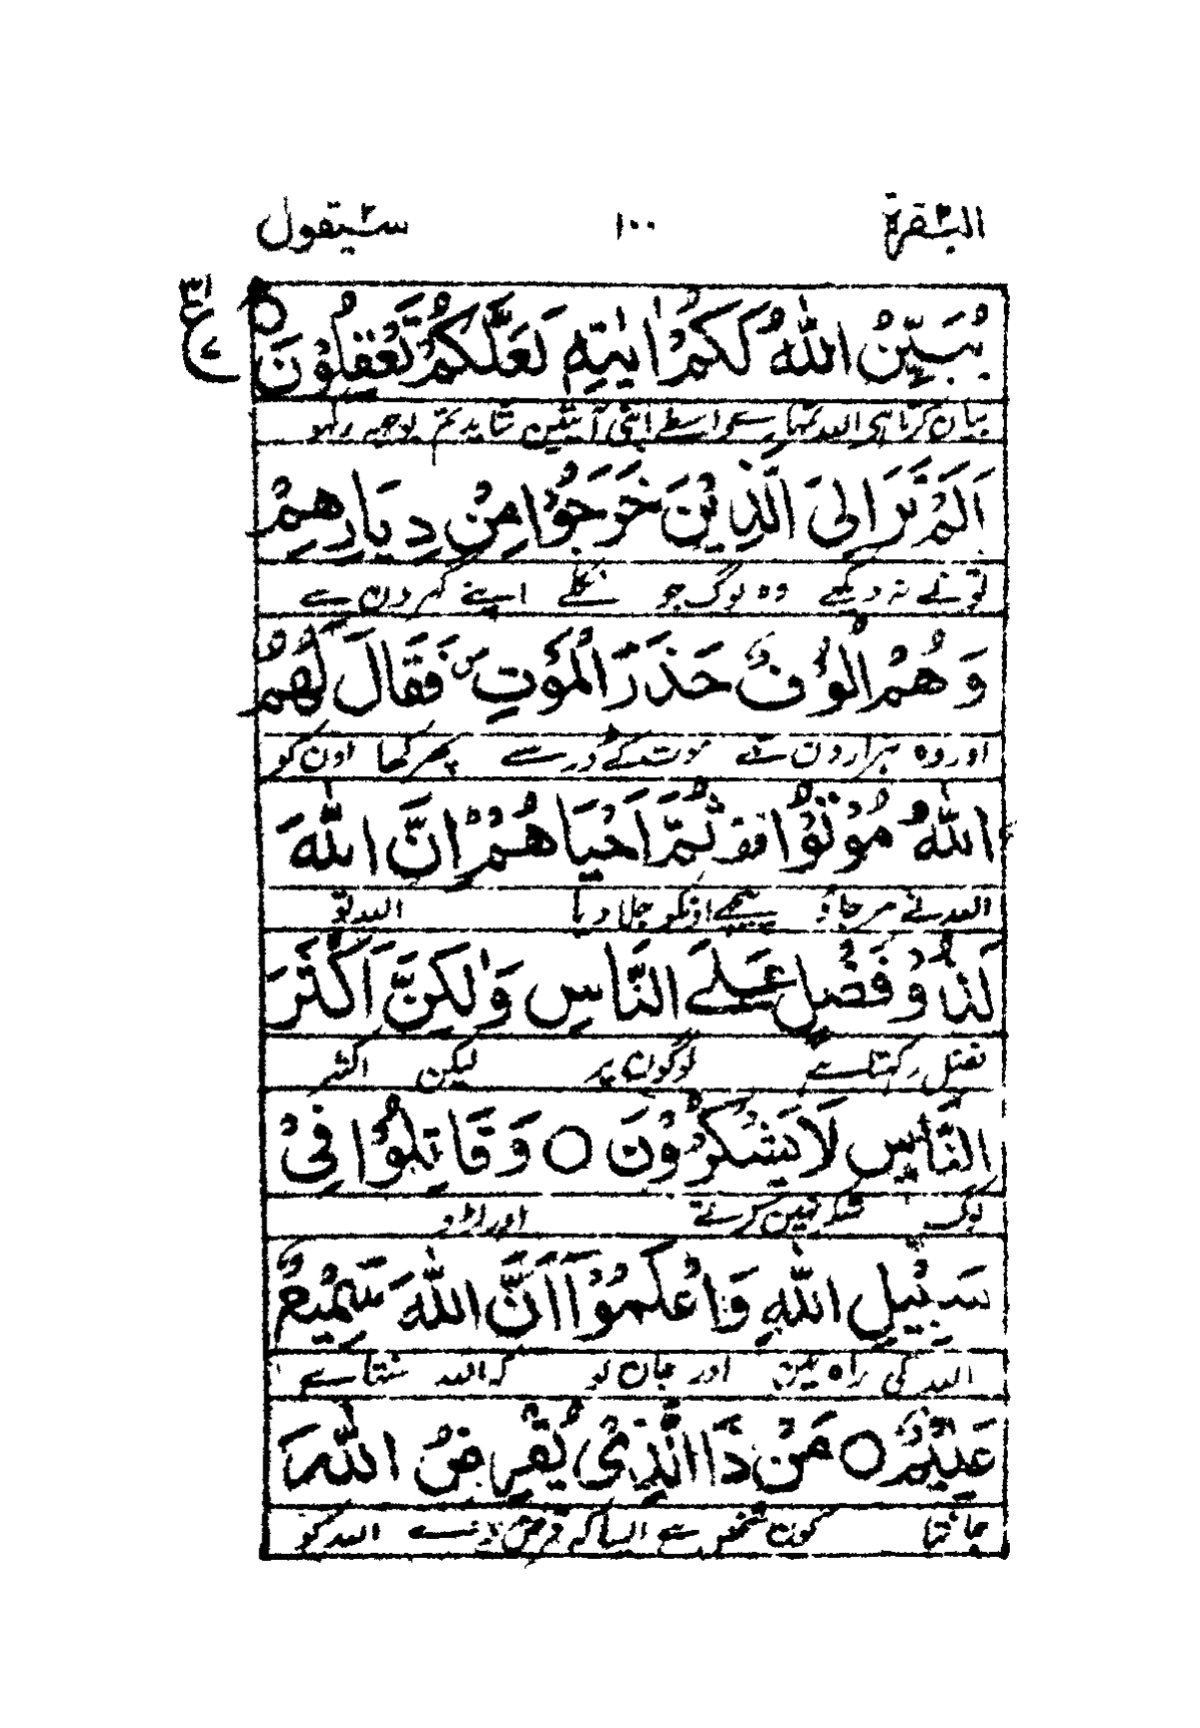 البقرة ۱۰۰ سیقول
یُبَیِّنُ اللّٰهُ لَكُمْ اٰیٰتِهٖ لَعَلَّكُمْ تَعْقِلُوْنَ
بیان کرتا ہی اللہ تمہارے واسطے اپنی آیتین شاید تم بوجہہ رکہو
اَلَمْ تَرَ اِلَی الَّذِیْنَ خَرَجُوْا مِنْ دِیَارِهِمْ
تونے نہ دیکہے وہ لوگ جو نکلے اپنے گہرون سے
وَهُمْ اُلُوْفٌ حَذَرَ الْمَوْتِ ص فَقَالَ لَهُمُ
اور وہ ہزارون تھے موت کے ڈر سے پھر کہا اون کو
اللّٰهُ مُوْتُوْا قف ثُمَّ اَحْیَاهُمْ ط اِنَّ اللّٰهَ
اللہ نے مرجاؤ پیچھے اونکو جلا دیا اللہ تو
لَذُوْ فَضْلٍ عَلَی النَّاسِ وَلٰكِنَّ اَكْثَرَ
فضل رکہتا ہے لوگون پر لیکن اکثر
النَّاسِ لَا یَشْكُرُوْنَ ○ وَقَاتِلُوْا فِیْ
لوگ شکر نہین کرتے اور لڑو
سَبِیْلِ اللّٰهِ وَاعْلَمُوْا اَنَّ اللّٰهَ سَمِیْعٌ
اللہ کی راہ مین اور جان لو کہ اللہ سنتا ہے
عَلِیْمٌ ○ مَنْ ذَا الَّذِیْ یُقْرِضُ اللّٰهَ
جانتا کون شخص ہے ایسا کہ قرض دے اللہ کو